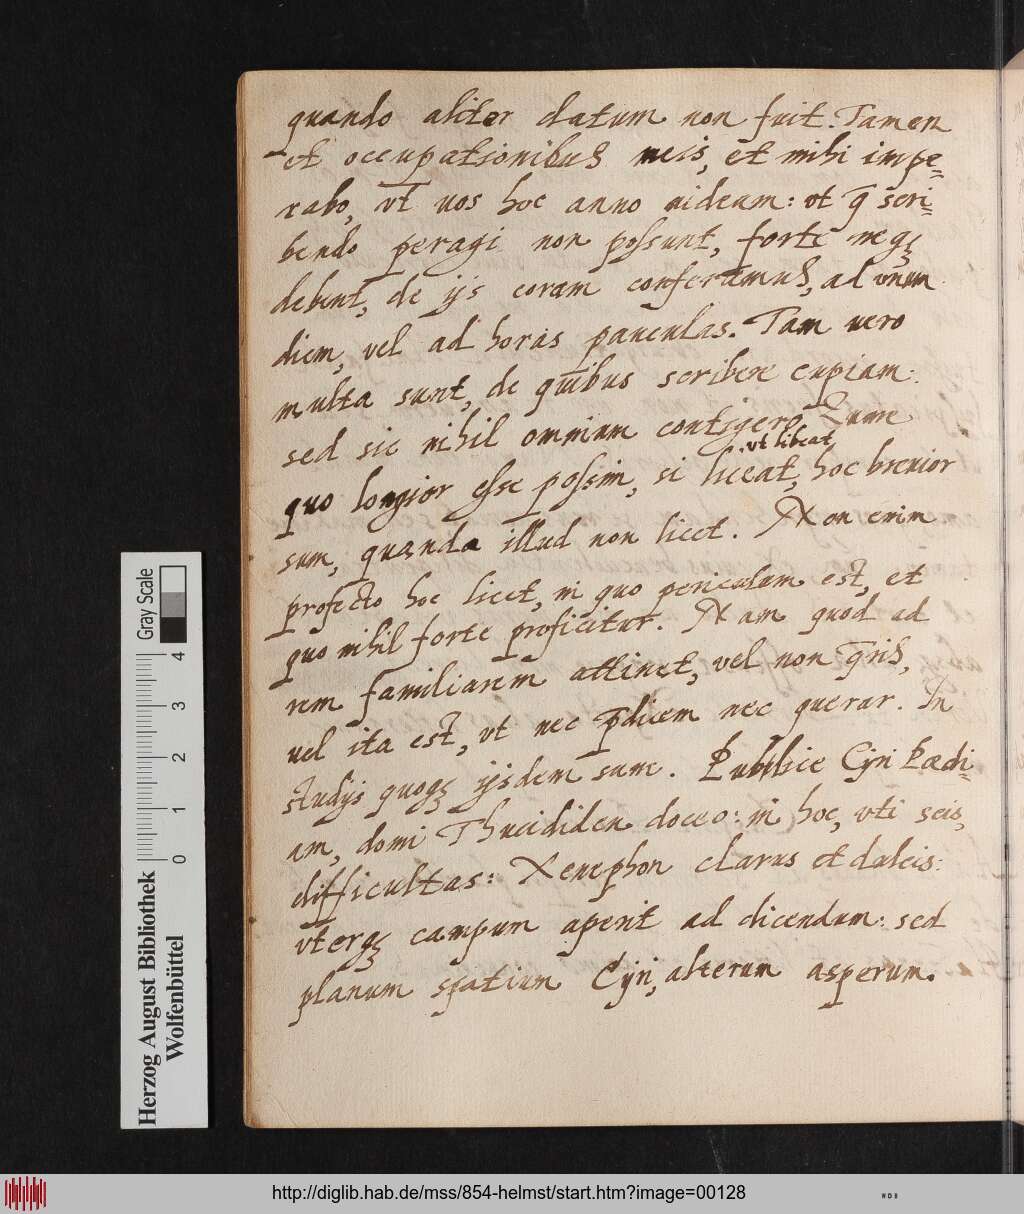 quando aliter datum non fuit. Tamen
et occupationibus meis, et mihi impe=
rabo, vt uos hoc anno uideam: vt q̄ scri=
bendo peragi non possunt, forte neqȝ
debent, de ijs coram conferamus, ad vnum
diem, vel ad horas pauculas. Tam vero
multa sunt, de quibus scribere cupiam:
sed sic nihil omnium contigero. Tume
vt libeat
quo longior esse possim, si liceat, hoc breuior
sum, quando illud non licet. Non enim
profecto hoc licet, in quo periculum est, et
quo nihil forte proficitur. Nam quod ad
rem familiarem attinet, vel non q̄ris,
uel ita est, vt nec p̄dicem nec querar. In
studijs quoqȝ ijsdem sum. Publice Cyri Pædi=
am, domi Thucididen doceo: in hoc, vti scis,
difficultas: Xenephon clarus et dulcis:
vterqȝ campum aperit ad dicendum: sed
planum spatium Cyri, alterum asperum.
Herzog August Bibliothek
Wolfenbüttel
0 1 2 3 4
Gray Scale
http://diglib.hab.de/mss/854-helmst/start.htm?image=00128
WDB